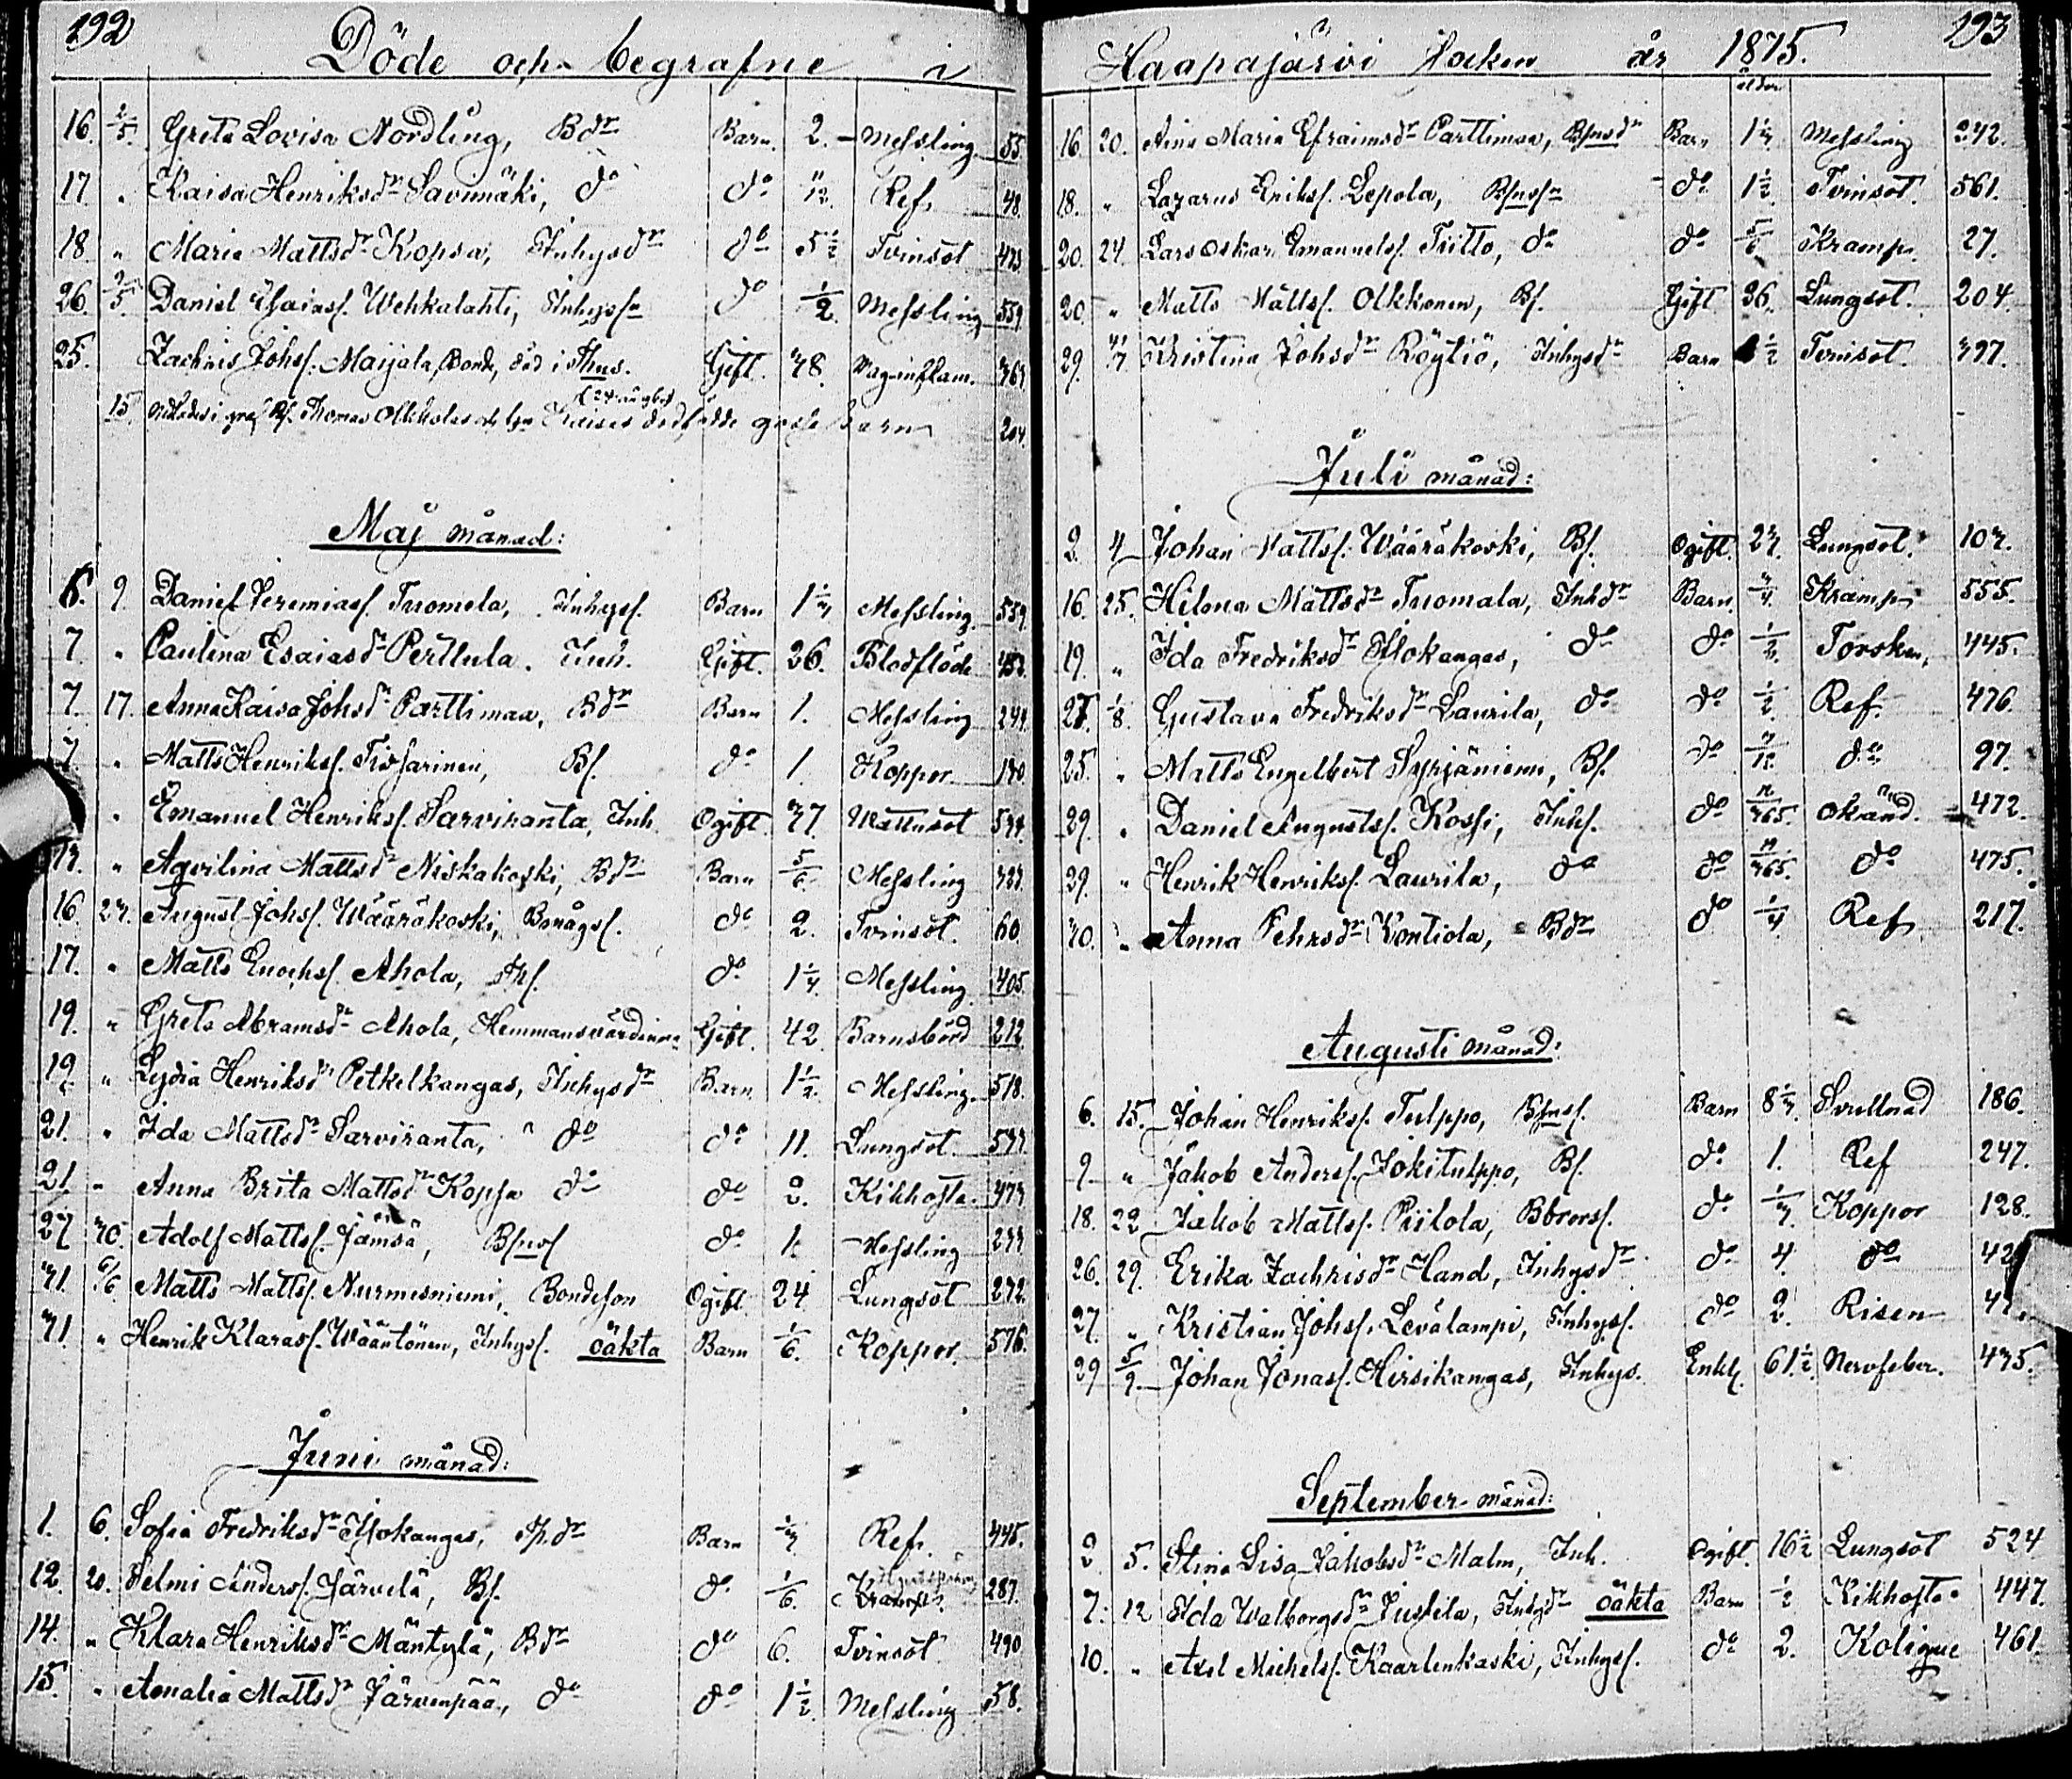 192
Döde och begrafne i
16. 2/5 Greta Lovisa Nordling, Bdr Barn. 2. Messling 55
17. " Kaisa Henriksdr Savimäki, do do 1/12. Ref. 48
18. " Maria Mattsdr Kopsa, Inhysdr do 5 1/2 Tvinsot 473
26. 2/5 Daniel Esaiass. Wehkalahti, Inhyssn do 1/2. Messling 559
25. Zachris Johss. Maijala, Bonde, död i Gift. 38. 363
15. Thomas Olkkolas Kaisas dödfödde gosse barn 204
Maj månad:
6. 9. Daniel Jeremiass. Tuomela, Inhyss. Barn 1 1/3 Messling 559
7. " Paulina Esaiasdr Perttula. Inh. Gift. 26. Blodflöde 453
7. 17. Anna Kaisa Johsdr Parttimaa, Bdr Barn 1. Messling 244
7. " Matts Henrikss. Tissarinen, Bs. do 1. Koppor 130
" Emanuel Henrikss. Sarviranta, Inh. Ogift. 37. Wattusot 533
13. " Aqvilina Mattsdr Niskakoski, Bdr Barn 5/6 Messling 333
16. 23. August Johss. Wääräkoski, Bmågs. do 2. Tvinsot. 60
17. " Matts Enochss. Ahola, do 1 1/4. Messling 405
19. " Greta Abramsdr Ahola, Hemmansvärdinna Gift. 42. Barnsbörd 212
19. " Lydia Henriksdr Petkelkangas, Inhysdr Barn 1 1/2. Messling. 518.
21. " Ida Mattsdr Sarviranta, do do 11. Lungsot. 533
21 " Anna Brita Mattsdr Kopsa do do 2. Kikhosta. 473
27 30. Adolf Mattss. Jämsä, do 1. Messling 233
31. 6/6 Matts Mattss. Nurmesniemi, Bondeson Ogift. 24 Lungsot 272.
31. " Henrik Klarass. Wääntönen, Inhyss. oäkta Barn 1/6. Koppor. 576.
Juni månad:
1. 6. Sofia Fredriksdr Isokangas, Barn 1/3 Ref. 445.
12. 20. Selmi Anderss. Järvelä, Bs. do 1/6. 287.
14. " Klara Henriksdr Mäntylä, Bdr do 6. Tvinsot. 490
15. " Amalia Mattsdr Järvenpää, do do 1 1/2 Messling 58.
193
Haapajärvi Socken år 1875.
ålder
16. 20. Aina Maria Efraimsdr Parttimaa, Barn 1 1/3 Messling 242.
18. " Lazarus Erikss. Lepola, do 1 1/2. Tvinsot. 561.
20. 24. Lars Oskar Emanuelss. Tiitto, do do 5/6 Kramp. 27.
20. " Matts Mattss. Olkkonen, Bs. Gift 36. Lungsot. 204.
29. 4/7 Kristina Johsdr Röytiö, Inhysdr Barn 1/2 Tvinsot. 397.
Juli månad:
2. 4 Johan Mattss. Wääräkoski, Bs. Ogift. 23. Lungsot. 103.
16. 25. Helena Mattsdr Tuomala, Inhdr Barn 3/4 Kramp. 555.
19. " Ida Fredriksdr Isokangas, do do 1/2. Torsken, 445.
21. 1/8. Gustava Fredriksdr Laurila, do do 1/2. Ref. 476.
25. " Matts Engelbert Syrjäniemi, Bs. do 7/12. do 97.
29. " Daniel Augustss. Kossi, Inhs. do 365. okänd. 472.
29. " Henrik Henrikss. Laurila, do do 365. do 475.
30. " Anna Pehrsdr Kontiola, Bdr do 1/4 Ref. 217.
Augusti månad:
6. 15. Johan Henrikss. Tulppo, Barn 8 1/3 Svullnad 186.
9 " Jakob Anderss. Jokitulppo, Bs. do 1. Ref 247.
18. 22 Jakob Mattss. Piilola, Bbrors. do 1/3. Koppor 128.
26. 29. Erika Zachrisdr Hand, Inhysdr do 4. do 42
27. " Kristian Johss. Levälampi, Inhyss. do 2. Risen
29 5/9. Johan Jonass. Hirsikangas, Inhys. Enkl. 61 1/2. Nervfeber. 435.
September månad:
2 5. Stina Lisa Jakobsdr Malm, Inh. Ogift. 16 1/2 Lungsot 524
7. 12 Ida Walborgsdr Jussila, Inhysdr oäkta Barn 1/2 Kikhosta 447.
10. " Axel Michelss. Kaarlenkaski, Inhyss. do 2. Kolique 461.